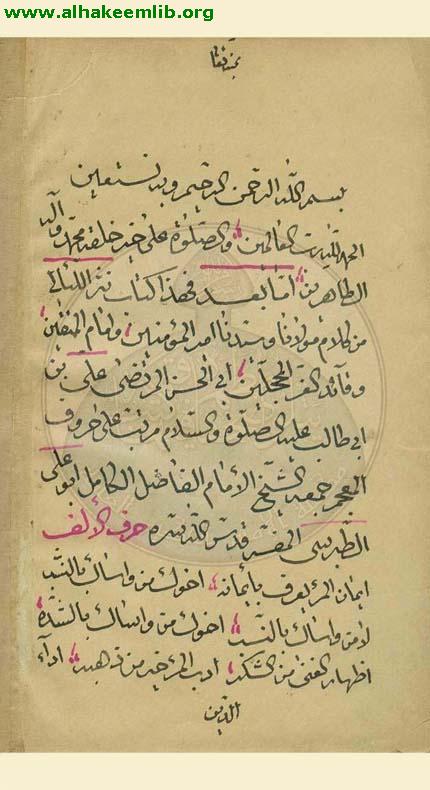 www.alhakeemlib.org
بسم الله الرحمن الرحيم وبه نستعين
الحمد لله رب العالمين والصلوة على خير خلقه محمد وآله
الطاهرين اما بعد فهذا كتاب نثر اللئالي
من كلام مولانا وسيدنا امير المؤمنين وامام المتقين
وقائد الغر المحجلين ابي الحسن المرتضى علي بن
ابي طالب عليه الصلوة والسلام مرتب على حروف
المعجم جمعه الشيخ الامام الفاضل الكامل ابو علي
الطبرسي المفسر قدس الله سره حرف الألف
ايمان المرء يعرف بأيمانه اخوك من واساك بالنشب
لا من واساك بالنسب اخوك من واساك بالشدة
اظهار الغنى من الشكر ادب المرء خير من ذهبه اداء
الدين